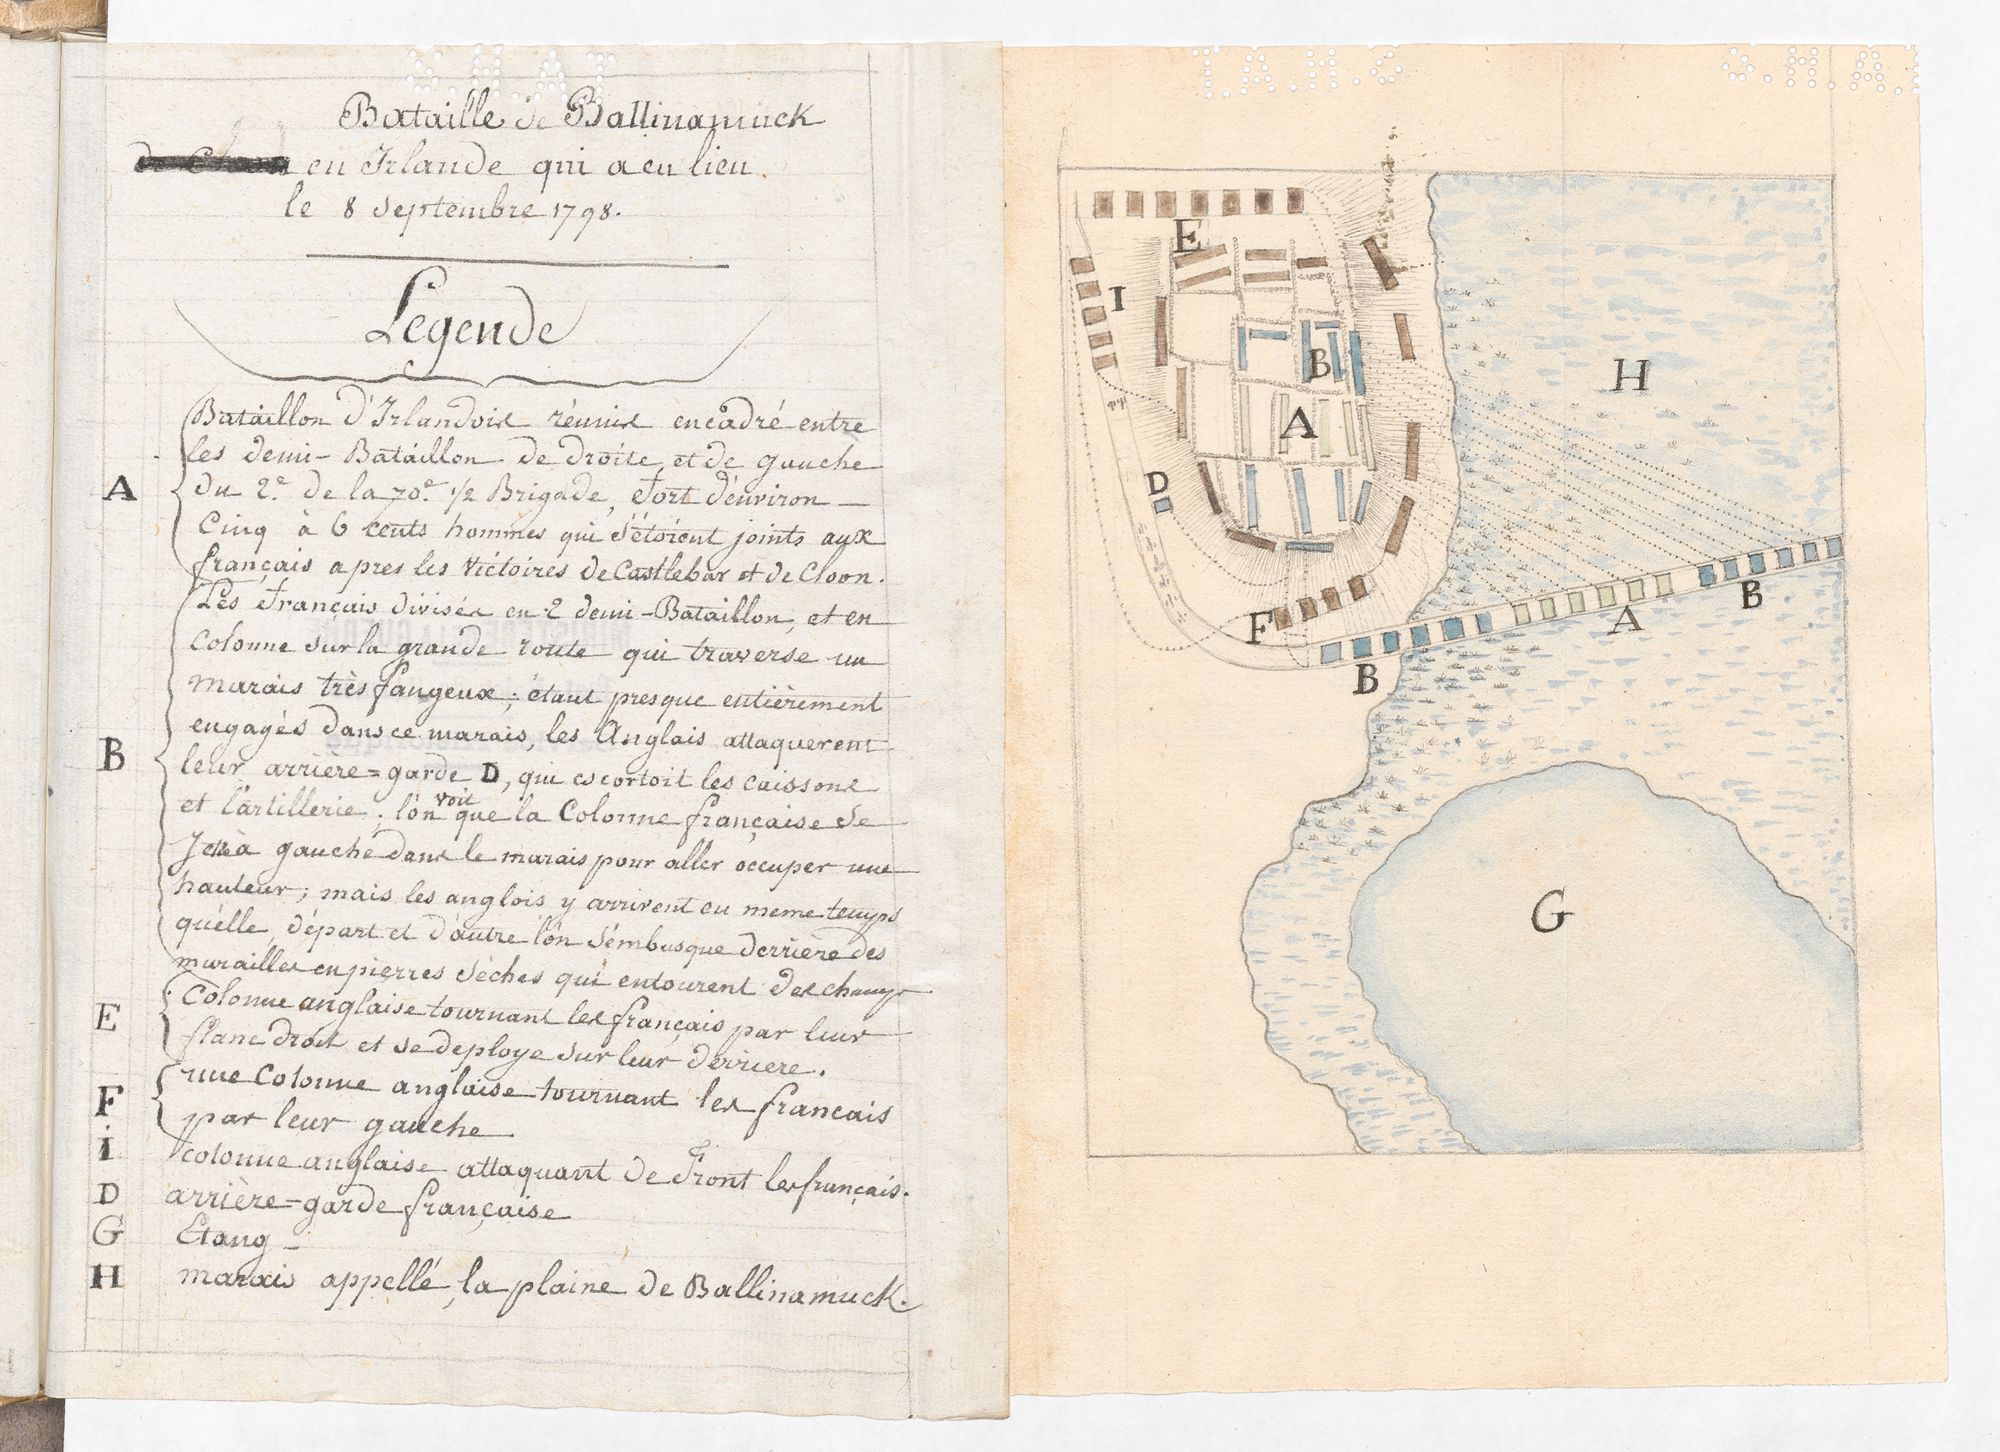 Bataille de Ballinamuck
en Irlande qui a eu lieu
le 8 Septembre 1798.
Légende
A
Bataillon d'Irlandois réunis encadré entre
les demi-Bataillon de droite, et de gauche
du 2.e de la 70.e 1/2 Brigade, fort d'environ
Cinq à 6 cents hommes qui s'étoient joints aux
français apres les Victoires de Castlebar et de Cloon.
B
Les français divisés en 2 demi-Bataillon, et en
Colonne sur la grande route qui traverse un
marais très fangeux; étant presque entièrement
engagés dans ce marais, les Anglais attaquerent
leur arrière=garde D, qui escortoit les caissons
et l'artillerie; l'on voit que la Colonne française se
Jette à gauche dans le marais pour aller occuper une
hauteur; mais les anglois y arrivent en meme temps
qu'elle, d'épart et d'autre l'on s'embusque derriere des
murailles en pierres sèches qui entourent des champs
E
Colonne anglaise tournant les français par leur
flanc droit et se deploye sur leur derriere.
F
une Colonne anglaise tournant les francais
par leur gauche
i
Colonne anglaise attaquant de Front les français.
D
arrière=garde française
G
Etang
H
marais appellé, la plaine de Ballinamuck.
S.H.A.T.
S.H.A.T.
S.H.A.
E
I
H
B
A
D
F
B
A
B
G